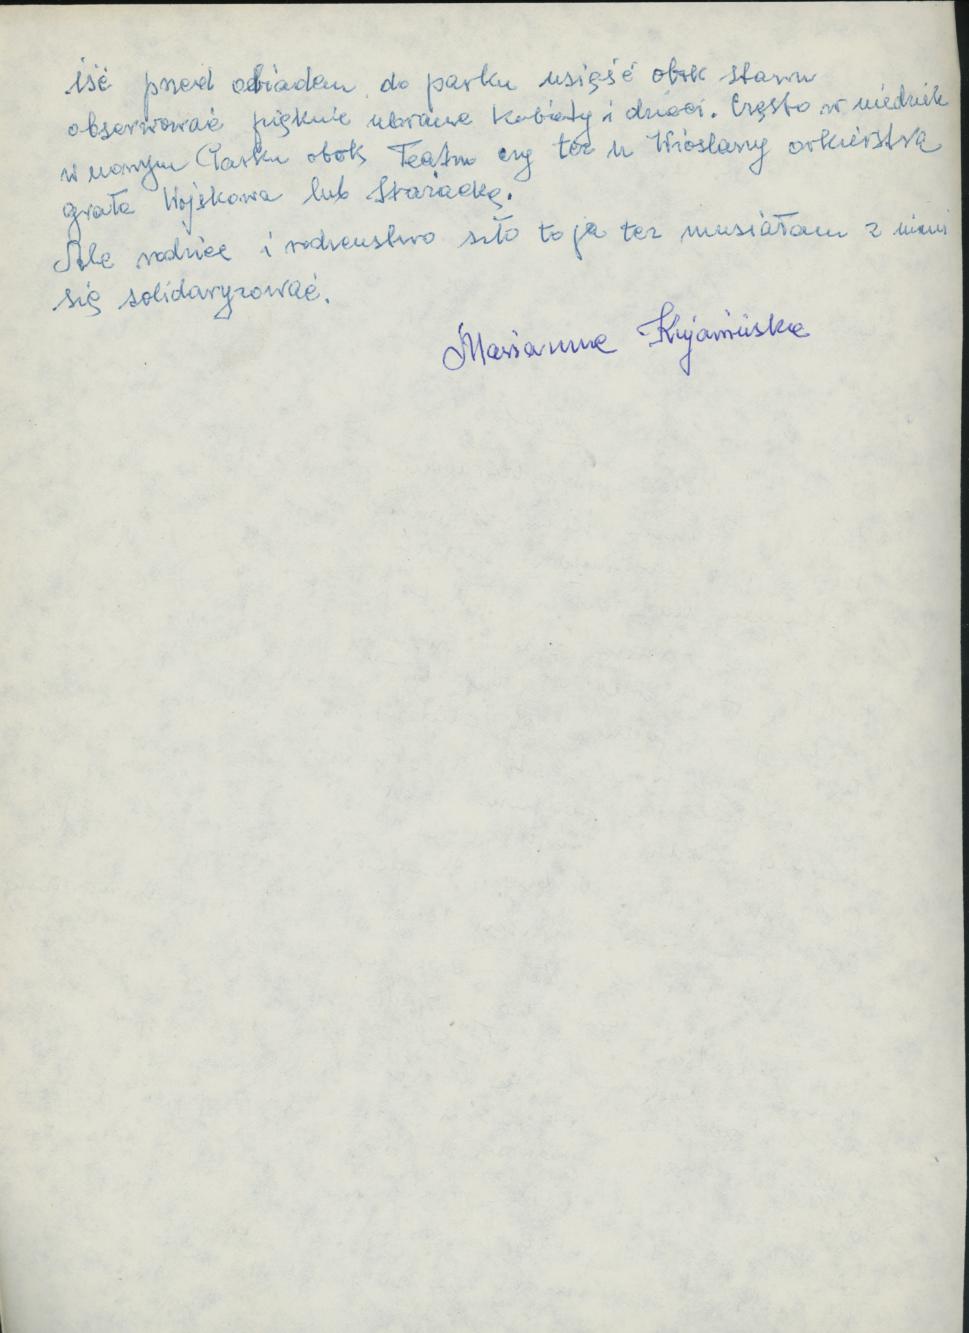 iść przed obiadem do parku usiąść obok stawu
obserwować pięknie ubrane kobiety i dzieci. Często w niedziele
w nowym Parku obok Teatru czy też u Wioślarzy orkiestra
grała Wojskowa lub Strażacka.
Ale rodzice i rodzeństwo szło to ja też musiałam z nimi
się solidaryzować.
Marianna Kujawińska